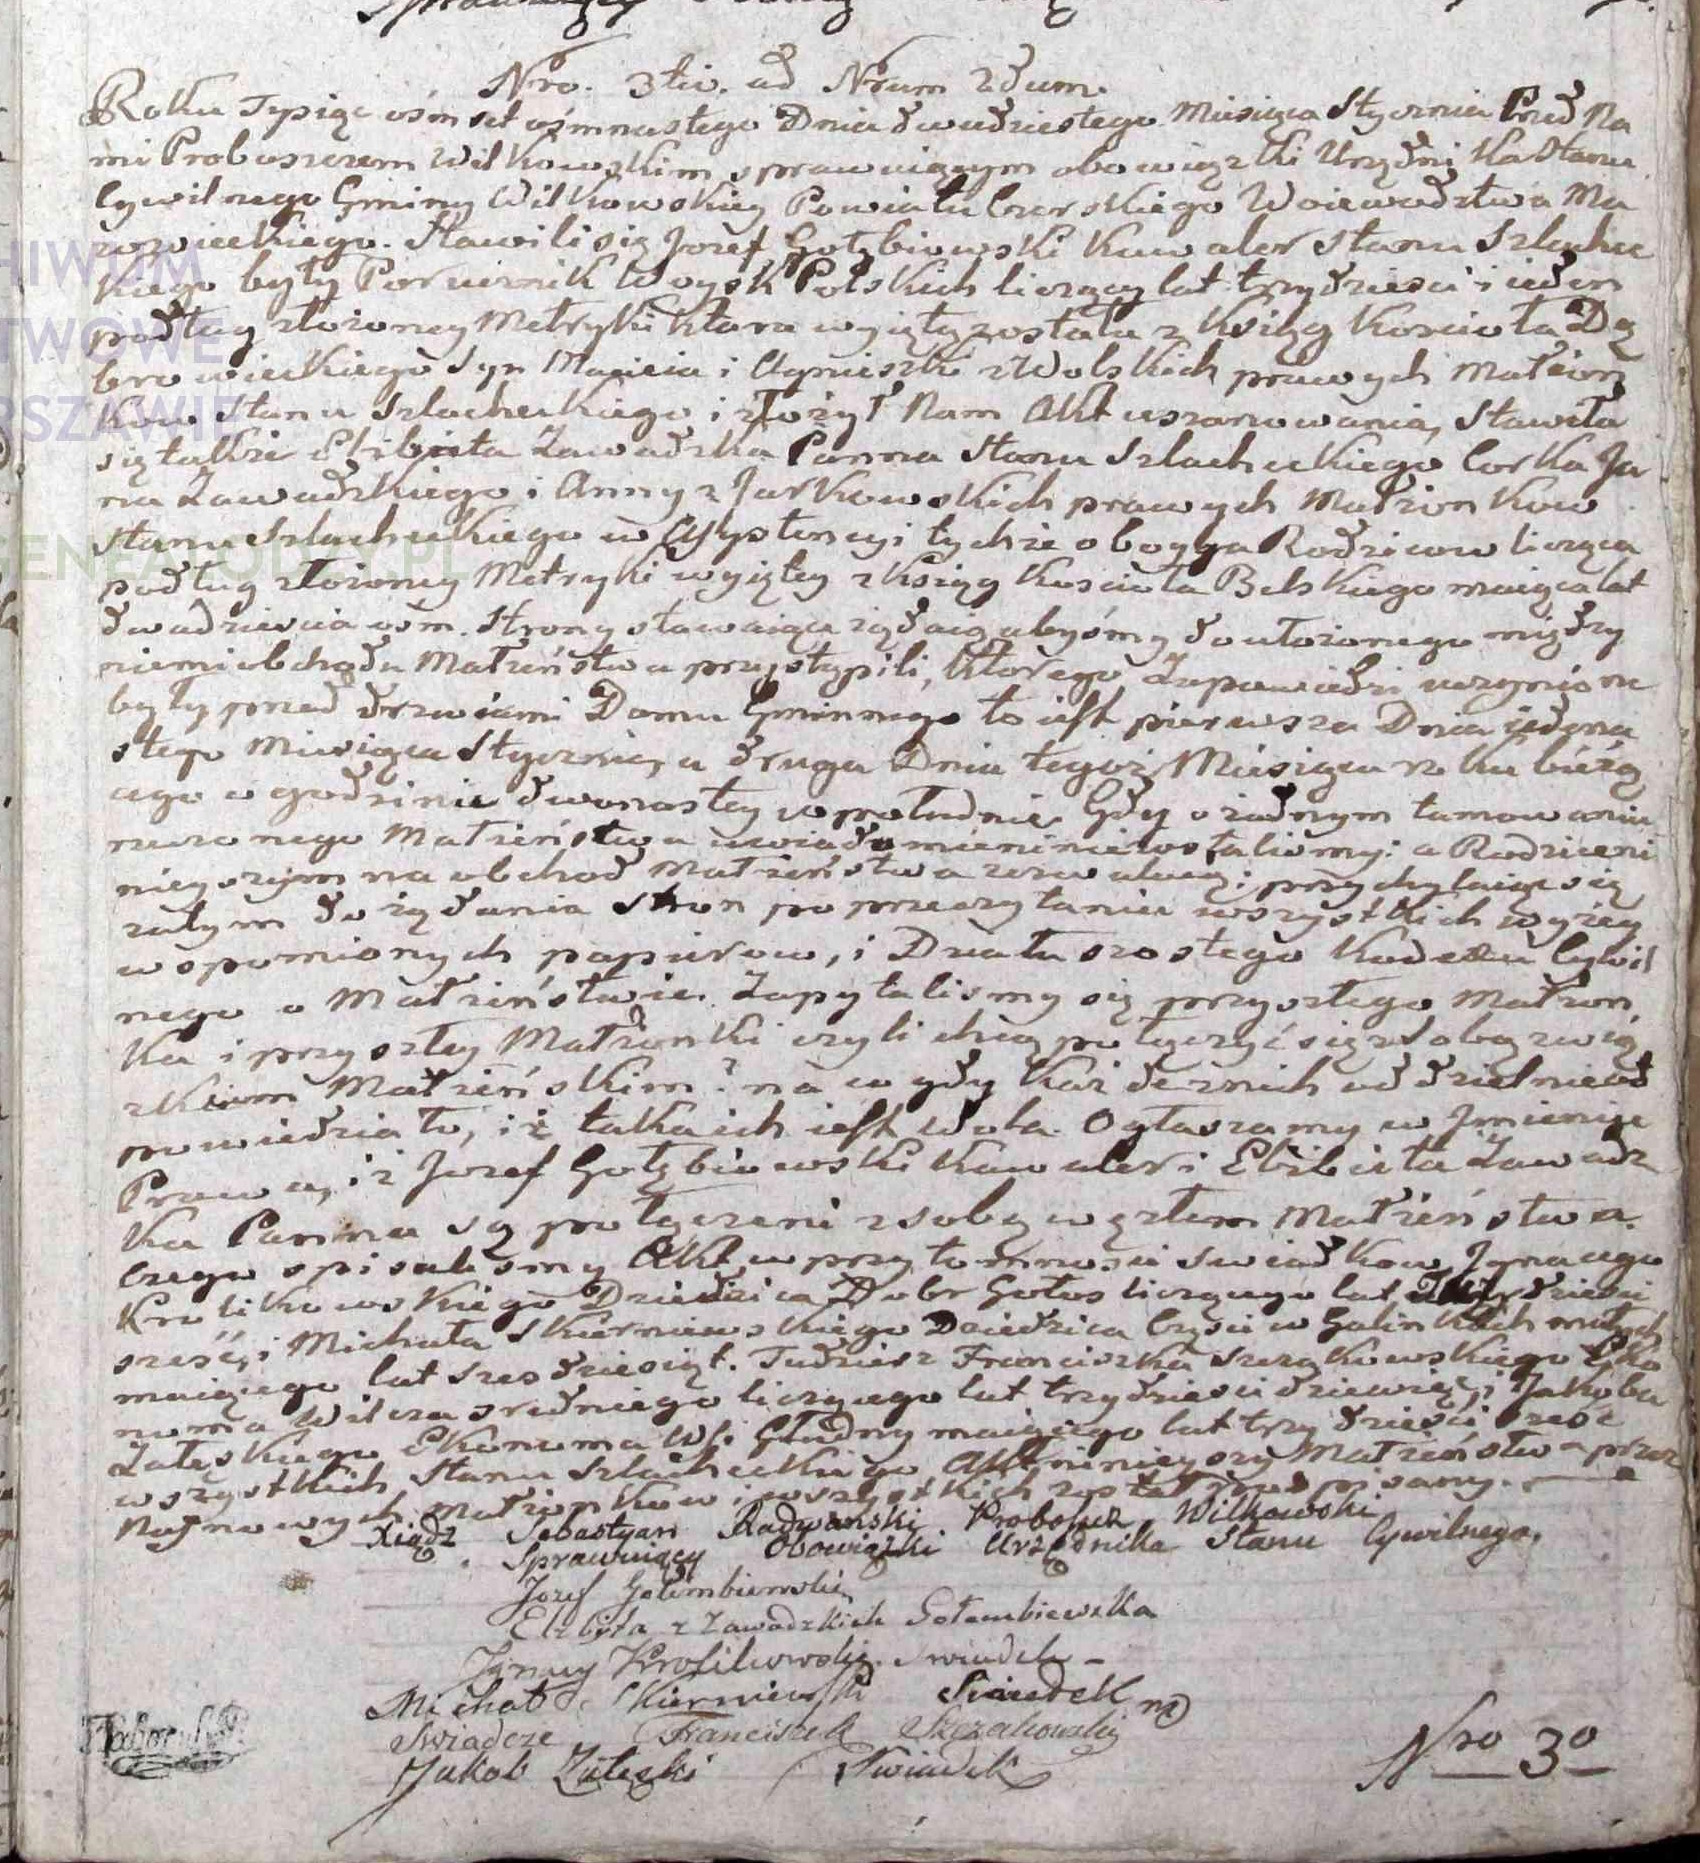 Nro. 3tiu. ad Nrum 2dum
Roku Tysiąc ośmset ośmnastego Dnia dwudziestego Miesiąca Stycznia Przed Na
mi Proboszczem Wilkowskim sprawuiącym obowiązki Urzędnika Stanu
Cywilnego Gminy Wilkowskiey Powiatu Czerskiego Woiewodztwa Ma
zowieckiego. Stawili się Jozef Gołębiowski Kawaler Stanu Szlachec
kiego były Porucznik Woysk Polskich liczący lat trzydzieści i ieden
podług złożoney Metryki ktora wyięty została z Xsiąg Koscioła Dą
browieckiego Syn Macieia i Agnieszki z Wolskich prawych Małżon
kow Stanu Szlacheckiego i złożył Nam Akt uszanowania, Stawiła
się także Elżbieta Zawadzka Panna Stanu Szlacheckiego Corka Ja
na Zawadzkiego i Anny z Jurkowskich prawych Małżonkow
Stanu Szlacheckiego w Assystencyi tychże oboyga Rodzicow licząca
podług złożoney Metryki wyiętey z Xsiąg Koscioła Belskiego maiąca lat
dwadzieścia ośm. Strony stawaiące żądaią abyśmy do ułożonego między
niemi obchodu Małżeństwa przystąpili, ktorego Zapowiedzi uczynione
były przed drzwiami Domu Gminnego to iest pierwsza Dnia iedena
stego Miesiąca Stycznia, a druga Dnia tegoż Miesiąca roku bieżą
cego o godzinie dwonastey w południe Gdy o żadnym tamowaniu
rzeczonego Małżeństwa uwiadomieni niezostaliśmy: a Rodzice ni
nieyszym na obchod Małżeństwa zezwalaią; przychylaiąc się
zatym do żądania Stron po przeczytaniu wszystkich wyżey
wspomionych papierow, i Działu szostego Kodexu Cywil
nego o Małżeństwie. Zapytaliśmy się przyszłego Małżon
ka i przyszłey Małżonki czyli chcą połączyć się z sobą zwią
zkiem Małżeńskim? na co gdy każde z nich oddzielnie od
powiedziało, iż taka ich iest wola. Ogłaszamy w Jmieniu
Prawa, iż Jozef Gołębiowski Kawaler i Elżbieta Zawadz
ka Panna są połączeni z sobą węzłem Małżeństwa.
Czego spisaliśmy Akt w przytomności swiadkow Jgnacego
Krolikowskiego Dziedzica Dobr Gołos liczącego lat trzydzieści
sześć, i Michała Skierniewskiego Dziedzica Części w Golinkach małych
maiącego lat sześdziesiąt. Tudziesz Franciszka Szczakowskiego Eko
noma Wilcza sredniego liczącego lat trzydzieści dziewięć, i Jakoba
Załeskiego Ekonoma Wsi Głudny maiącego lat trzydzieści sześć
wszystkich Stanu Szlacheckiego, Akt ninieyszy Małżeństwa przez
Małżonkow i wszystkich został podpisany.
Xiądz Sebastyan Radwański Proboszcz Wilkowski
Sprawuiący Obowiązki Urzędnika Stanu Cywilnego.
Jozef Gołembiewski
Elżbieta z Zawadzkich Gołembiewska
Jgnacy Krolikowski Swiadek
Michał Skierniewski Swiadek
Swiadcze Franciszek Szczakowski
Jakob Załeski Swiadek
Nro 3o
ARCHIWUM
PAŃSTWOWE
W WARSZAWIE
GENEALODZY.PL